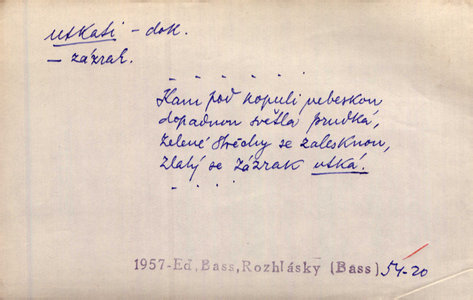 utkati - dok.
- zázrak.
- - - - - -
Kam pod kopuli nebeskou
dopadnou světla prudká,
zelené střechy se zalesknou,
zlatý se zázrak utká.
- - - -
1957-Ed, Bass, Rozhlásky (Bass) 54-20